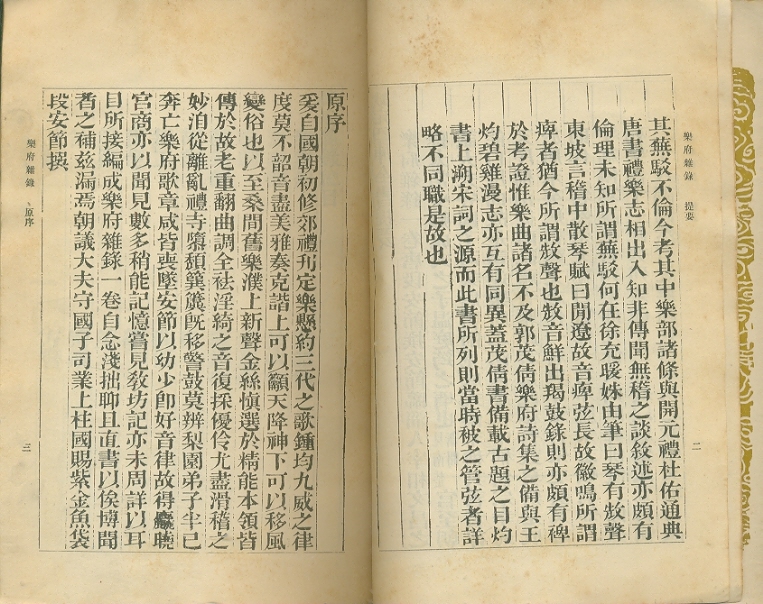 樂府雜錄 提要
二
其蕪駁不倫今考其中樂部諸條與開元禮杜佑通典
唐書禮樂志相出入知非傳聞無稽之談敘述亦頗有
倫理未知所謂蕪駁何在徐充暖姝由筆曰琴有㪇聲
東坡言稽中散琴賦曰閒遼故音痺弦長故徽鳴所謂
痺者猶今所謂㪇聲也㪇音鮮出羯鼓錄則亦頗有裨
於考證惟樂曲諸名不及郭茂倩樂府詩集之備與王
灼碧雞漫志亦互有同異蓋茂倩書備載古題之目灼
書上溯宋詞之源而此書所列則當時被之管弦者詳
略不同職是故也
原序
爰自國朝初修郊禮刋定樂懸約三代之歌鍾均九威之律
度莫不韶音盡美雅奏克諧上可以籲天降神下可以移風
變俗也以至桑間舊樂濮上新聲金絲愼選於精能本領皆
傳於故老重翻曲調全袪淫綺之音復採優伶尤盡滑稽之
妙洎從離亂禮寺隳頹簨簴旣移警鼓莫辨梨園弟子半已
奔亡樂府歌章咸皆喪墜安節以幼少卽好音律故得麤曉
宮商亦以聞見數多稍能記憶嘗見敎坊記亦未周詳以耳
目所接編成樂府雜錄一卷自念淺拙聊且直書以俟博聞
者之補茲漏焉朝議大夫守國子司業上柱國賜紫金魚袋
段安節撰
樂府雜錄 原序
三